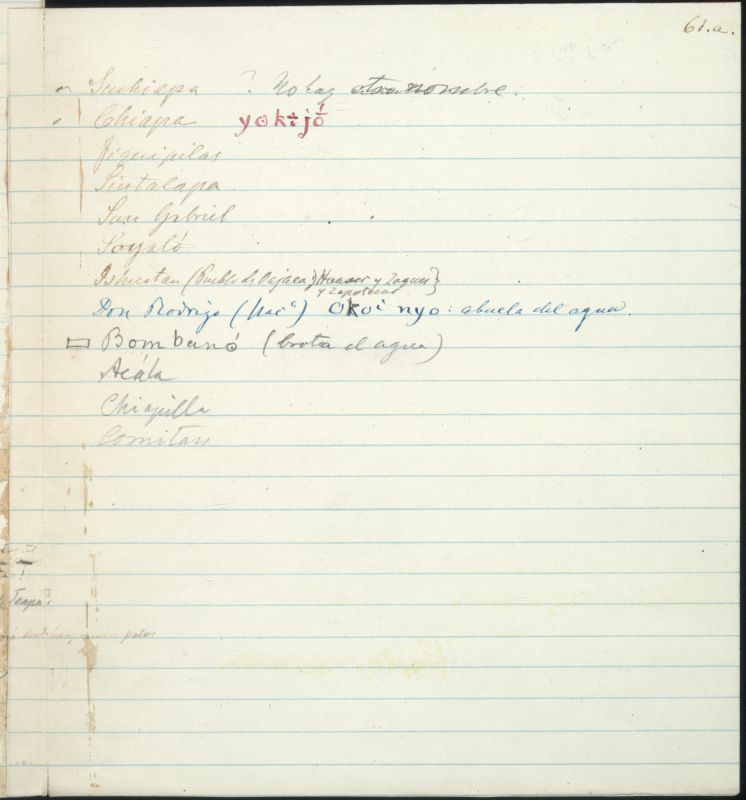 61.a.
Suchiapa ? No hay otro nombre.
Chiapa yokɨjó
Jiquipilas
Sintalapa
San Gabriel
Soyaló
Ishuatan (Pueblo de Oajaca) Huaser y Zoques}
y Zapotecas
Don Rodrigo (Hacª) Okoi nyo: abuela del agua.
Bombanó (brota el agua)
Acála
Chiapilla
Comitan
Teapa?
pelos